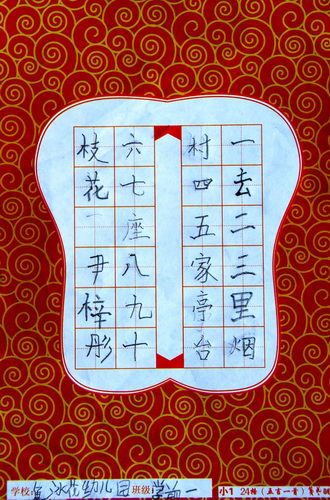 一去二三里烟
村四五家亭台
六七座八九十
枝花
尹梓彤
学校: 冰花幼儿园 班级: 学前一
小1 24格 (五言一首)